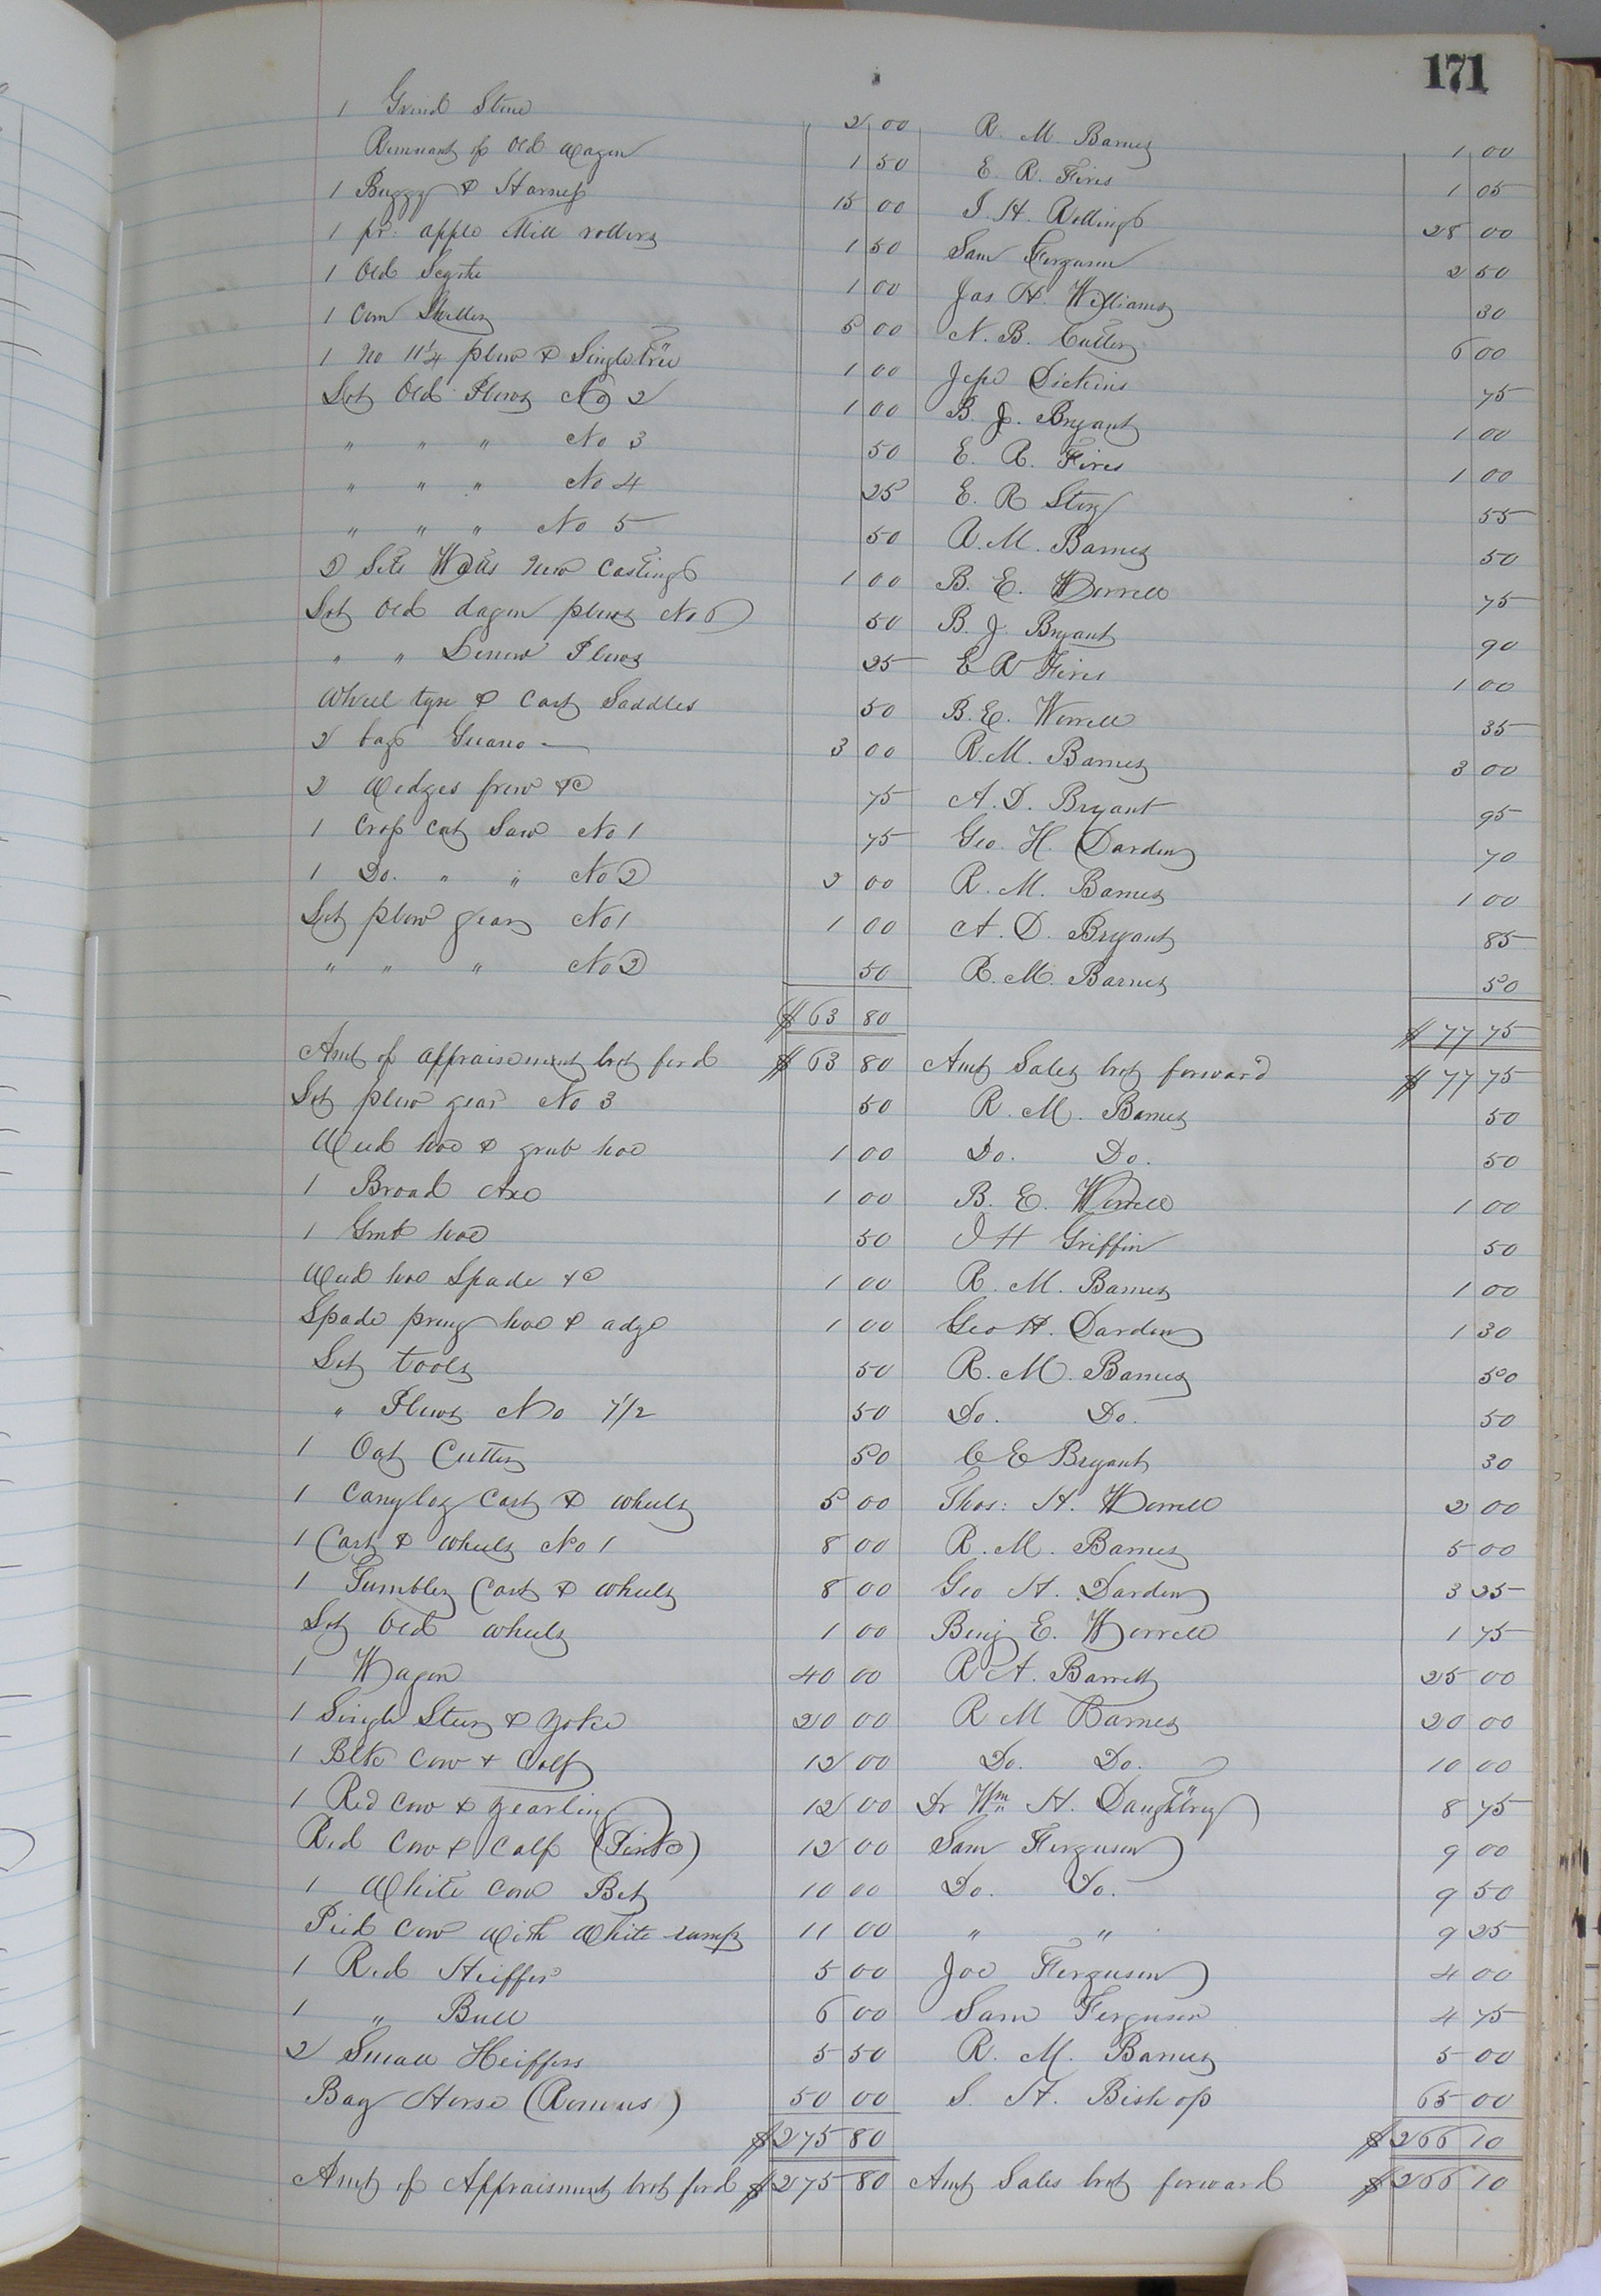 171
1 Grind Stone 2 00 R. M. Barnes 1 00
Remnant of Old Wagon 1 50 E. R. Fires 1 05
1 Buggy & Harness 15 00 J. H. Rollings 28 00
1 pr. apple Mill rollers 1 50 Sam Ferguson 2 50
1 Old Scythe 1 00 Jas H. Williams 30
1 Corn Sheller 5 00 N. B. Cutler 6 00
1 No 11¼ plow & Singletree 1 00 Jesse Dickins 75
Lot Old Plows No 2 1 00 B. J. Bryant 1 00
" " " No 3 50 E. R. Fires 1 00
" " " No 4 25 E. R Story 55
" " " No 5 50 R. M. Barnes 50
2 Sets Watts New Castings 1 00 B. E. Worrell 75
Lot Old dagon plows No 6 50 B. J. Bryant 90
" " Plows 25 E R Fires 1 00
Wheel tyre & Cart Saddles 50 B. E. Worrell 35
2 bags Guano 3 00 R. M. Barnes 3 00
2 Wedges frow &c 75 A. D. Bryant 95
1 Crop Cut Saw No 1 75 Geo. H. Darden 70
1 Do. " " No 2 2 00 R. M. Barnes 1 00
Lot plow gear No 1 1 00 A. D. Bryant 85
" " " No 2 50 R. M. Barnes 50
$63 80 $77 75
Amt of appraisement brot ford $63 80 Amt Sales brot forward $77 75
Lot plow gear No 3 50 R. M. Barnes 50
Weed hoe & grub hoe 1 00 Do. Do. 50
1 Broad Axe 1 00 B. E. Worrell 1 00
1 Grub hoe 50 J H Griffin 50
Weed hoe Spade &c 1 00 R. M. Barnes 1 00
Spade prong hoe & adze 1 00 Geo H. Darden 1 30
Lot tools 50 R. M. Barnes 50
" Plows No 7½ 50 Do. Do. 50
1 Oat Cutter 50 C E Bryant 30
1 Carrylog Cart & wheels 5 00 Thos: H. Worrell 2 00
1 Cart & Wheels No 1 8 00 R. M. Barnes 5 00
1 Tumbler Cart & wheels 8 00 Geo H. Darden 3 25
Lot Old wheels 1 00 Benj E. Worrell 1 75
1 Wagon 40 00 R A. Barrett 25 00
1 Single Steer & Yoke 20 00 R M Barnes 20 00
1 Blk Cow & Calf 12 00 Do. Do. 10 00
1 Red Cow & Yearling 12 00 Dr Wm H. Daughtrey 8 75
Red Cow & Calf (Pink) 12 00 Sam Ferguson 9 00
1 White Cow Bet 10 00 Do. Do. 9 50
Pied Cow with White rump 11 00 " " 9 25
1 Red Heiffer 5 00 Joe Ferguson 4 00
1 " Bull 6 00 Sam Ferguson 4 75
2 Small Heiffers 5 50 R. M. Barnes 5 00
Bay Horse (Romus) 50 00 S. H. Bishop 65 00
$275 80 $266 10
Amt of Appraisment brot ford $275 80 Amt Sales brot forward $266 10